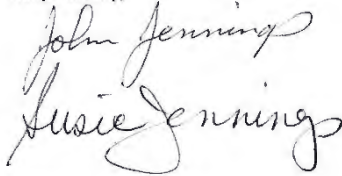 John Jennings
Susie Jennings